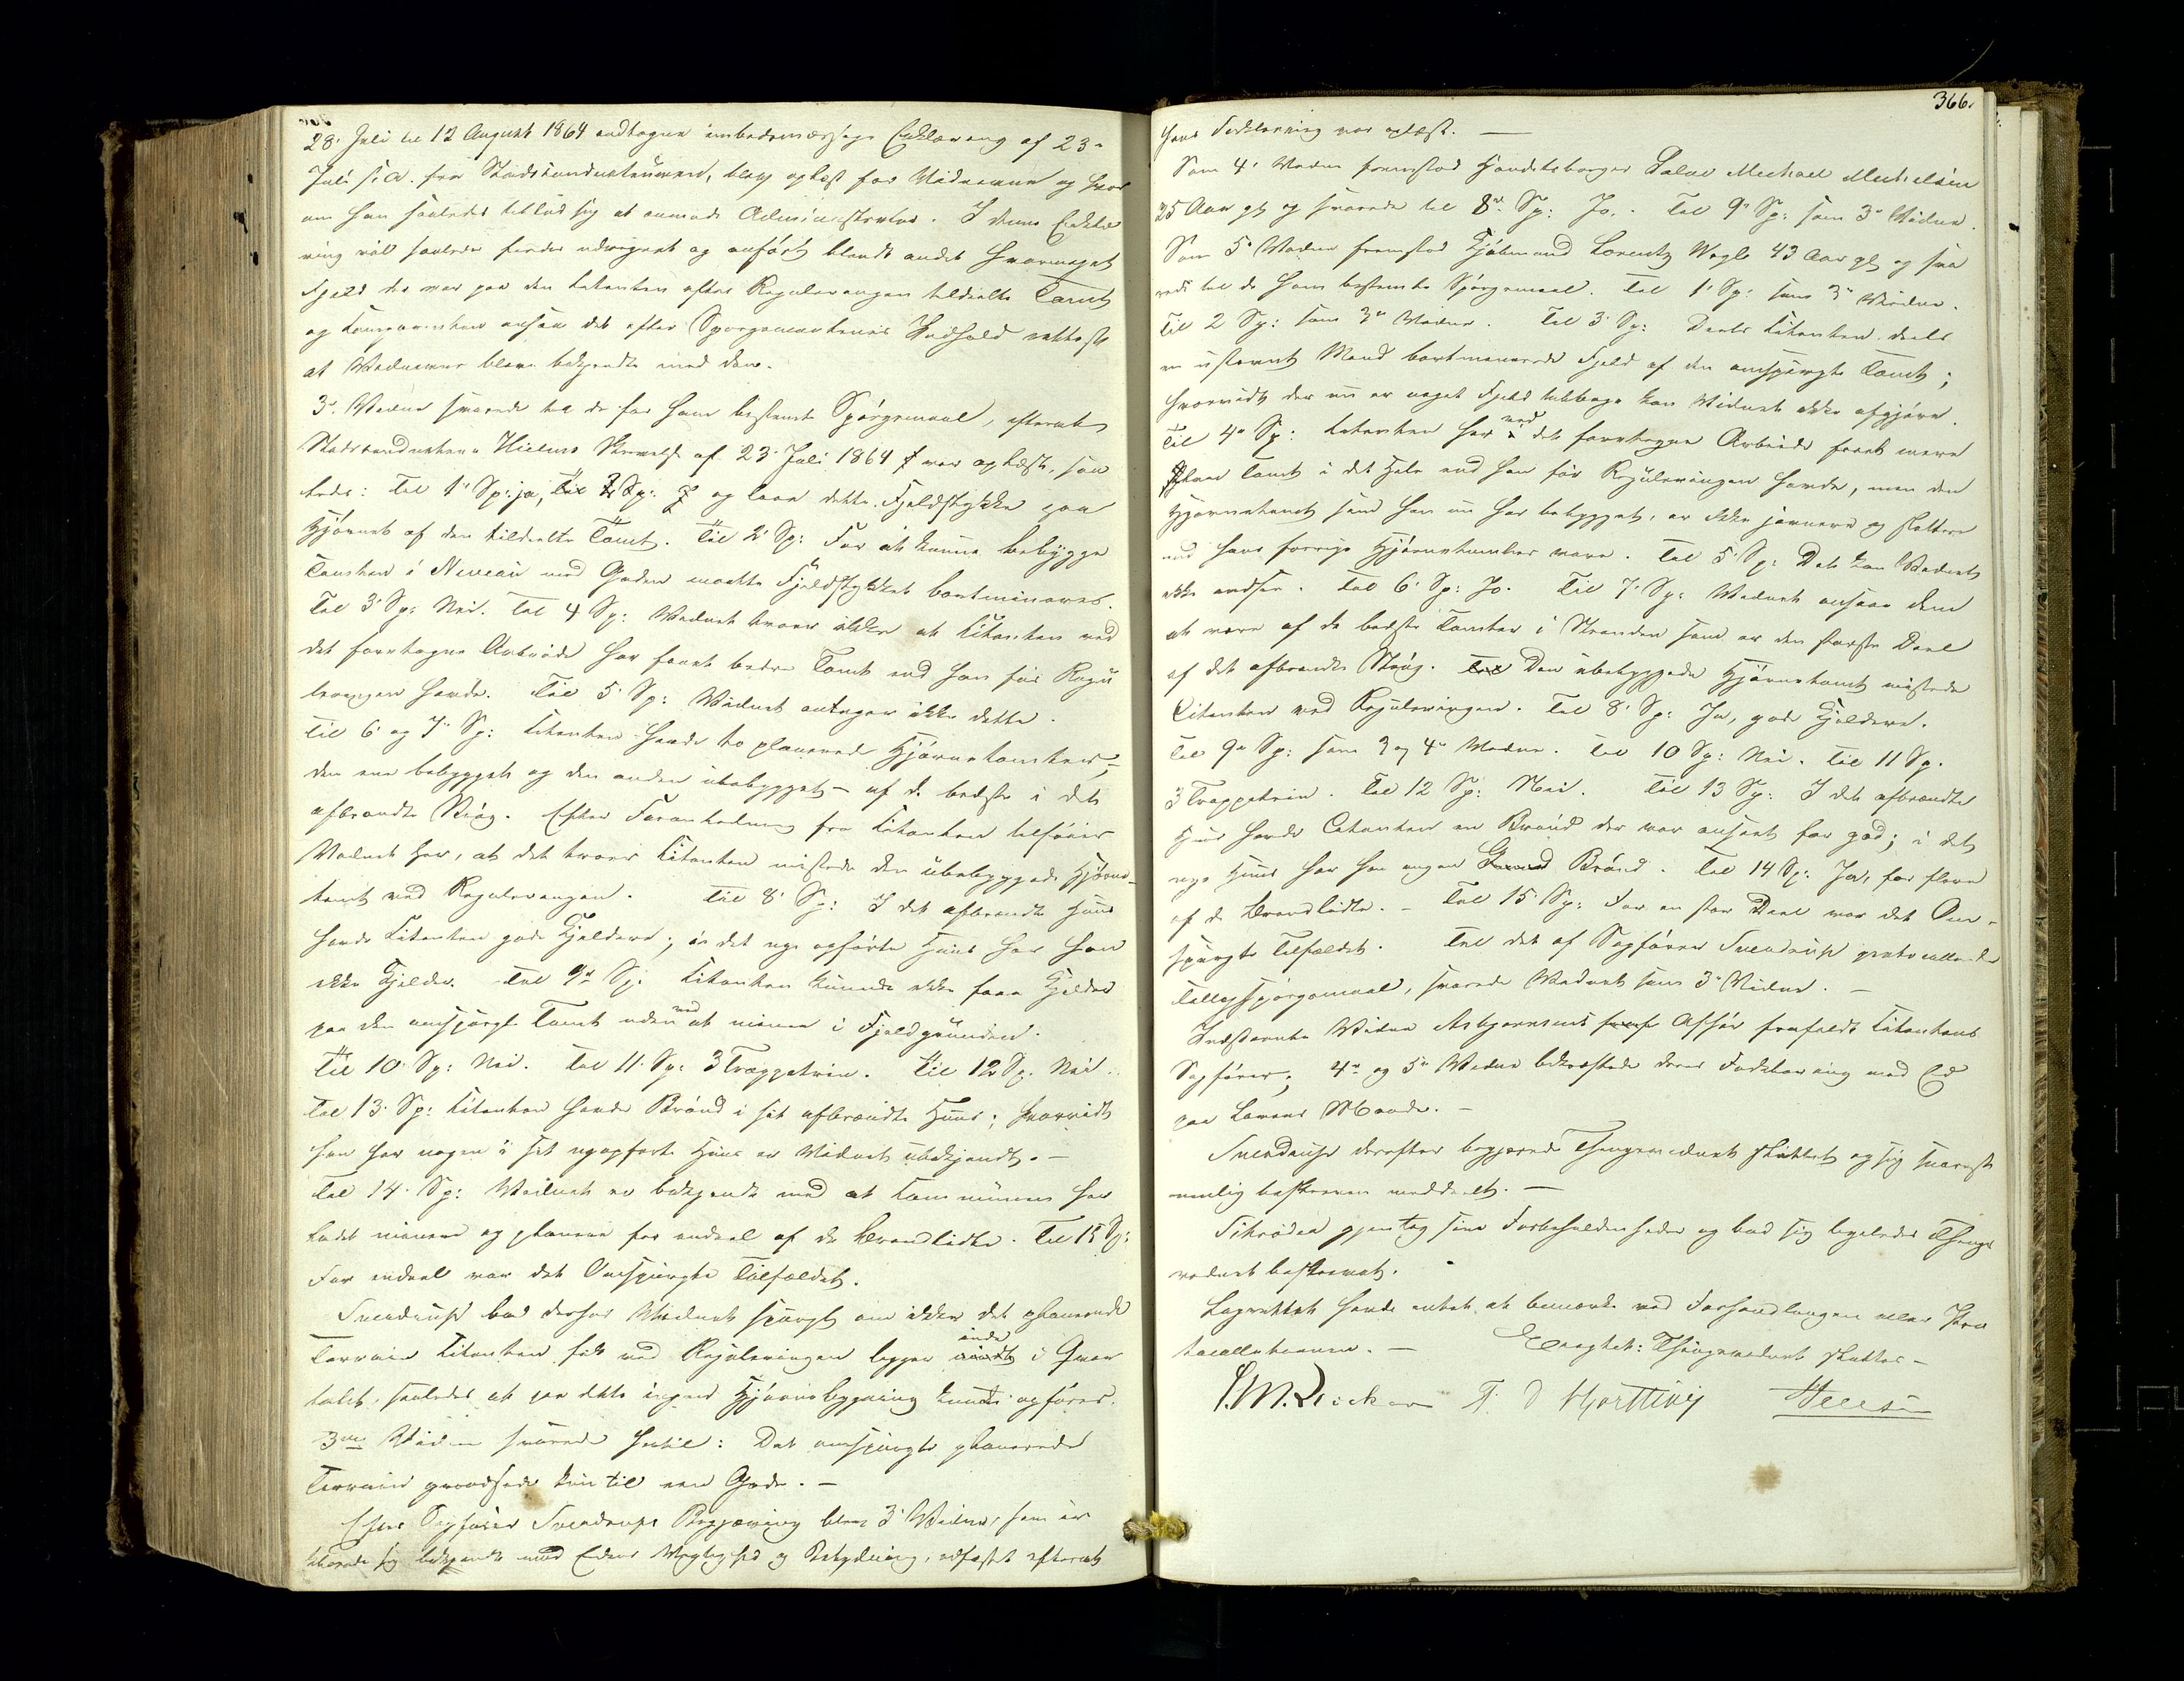 28' Juli til 12 August 1864 indtagne embedsmæssige Erklæring af 23'
Juli s. A. fra Stadskonducteuren, blev oplæst for Vidnerne og hvor
om han saaledes tillod sig at anmode Administrator. I denne Erklæ
ring vil saaledes findes udregnet og anført blandt andet hvormeget
Fjeld der var paa den Citanten efter Reguleringen tildeelte Tomt
og Comparenten ansaa det efter Spørgsmaalenes Indhold rettest
at Vidnerne bleve bekjendte med den.
3' Vidne svarede til de for ham bestemte Spørgsmaal, efterat
Stadskonducteur Hielms Skrivelse af 23' Juli 1864 var oplæst, saa
ledes: Til 1' Sp: ja, og laae dette Fjeldstykke paa
Hjørnet af den tildeelte Tomt. Til 2' Sp: For at kunne bebygge
Tomten i Niveau med Gaden maatte Fjeldstykket bortmineres.
Til 3' Sp: Nei. Til 4 Sp: Vidnet troer ikke at Citanten ved
det foretagne Arbeide har faaet bedre Tomt end han før Regu
leringen havde. Til 5' Sp: Vidnet antager ikke dette.
Til 6' og 7' Sp: Citanten havde to planerede Hjørnetomter,
den ene bebygget og den anden ubebygget – af de bedste i det
afbrændte Strøg. Efter Foranledning fra Citanten tilføier
Vidnet her, at det troer Citanten mistede den ubebyggede Hjørne-
tomt ved Reguleringen. Til 8' Sp: I det afbrændte Huus
havde Citanten gode Kjeldere; i det nye opførte Huus har han
ikke Kjelder. Til 9de Sp: Citanten kunde ikke faae Kjelder
paa den omspurgte Tomt uden ved at minere i Fjeldgrunden.
Til 10' Sp: Nei. Til 11' Sp: 3 Trappetrin. Til 12 Sp. Nei.
Til 13' Sp: Citanten havde Brønd i sit afbrændte Huus; hvorvidt
han har nogen i sit nyopførte Huus er Vidnet ubekjendt. –
Til 14' Sp: Vidnet er bekjendt med at Communen har
ladet minere og planere for endeel af de Brandlidte. Til 15 Sp:
For endeel var det Omspurgte Tilfældet.
Svendrup bad derhos Vidnet spurgt om ikke det planerede
Terrain Citanten fik ved Reguleringen ligger inde i Qvar
talet, saaledes at paa dette ingen Hjørnebygning kunde opføres.
3die Vidne svarede hertil: Det omspurgte planerede
Terrain grændsede kun til een Gade. –
Efter Sagfører Svendrups Begjæring blev 3' Vidne, som er
klærede sig bekjendt med Edens Vigtighed og Betydning, edfæstet efterat
366.
hans Forklaring var oplæst. –
Som 4' Vidne fremstod Handelsborger Salve Michael Michelsen
25 Aar gl og svarede til 8de Sp: Jo. Til 9' Sp: som 3' Vidne.
Som 5' Vidne fremstod Kjøbmand Lorentz Wogle 43 Aar gl og sva
rede til de ham bestemte Spørgsmaal. Til 1' Sp: som 3' Vidne.
Til 2 Sp: som 3' Vidne. Til 3' Sp: Deels Citanten, deels
en ustevnt Mand bortminerede Fjeld af den omspurgte Tomt;
hvorvidt der nu er noget Fjeld tilbage kan Vidnet ikke afgjøre.
Til 4' Sp: Citanten har ved det foretagne Arbeide faaet mere
plan Tomt i det Hele end han før Reguleringen havde, men den
Hjørnetomt som han nu har bebygget, er ikke jevnere og slettere
end hans forrige Hjørnetomter vare. Til 5' Sp: Det kan Vidnet
ikke indsee. Til 6' Sp: Jo. Til 7' Sp: Vidnet ansaae dem
at være af de bedste Tomter i Stranden som er den største Deel
af det afbrændte Strøg. Den ubebyggede Hjørnetomt mistede
Citanten ved Reguleringen. Til 8' Sp: Ja, gode Kjeldere.
Til 9' Sp: som 3 og 4' Vidne. Til 10 Sp: Nei. Til 11 Sp.
3 Trappetrin. Til 12 Sp: Nei. Til 13 Sp: I det afbrændte
Huus havde Citanten en Brønd der var anseet for god; i det
nye Huus har han ingen Brønd. Til 14 Sp: Ja, for flere
af de Brandlidte. – Til 15' Sp: For en stor Deel var det Om-
spurgte Tilfældet. Til det af Sagfører Svendrup protocollerede
Tillægsspørgsmaal, svarede Vidnet som 3' Vidne. –
Indstevnte Vidne Asbjørnsens Afhør frafaldt Citantens
Sagfører; 4' og 5' Vidne bekræftede deres Forklaring med Ed
paa Lovens Maade. –
Svendrup derefter begjærede Thingsvidnet sluttet og sig snarest
muelig beskreven meddeelt. –
Schrøder gjentog sine Forbeholdenheder og bad sig ligeledes Things
vidnet beskrevet.
Laugrettet havde intet at bemærke ved Forhandlingen eller Pro
tocollationen. – Eragtet: Thingsvidnet sluttes –